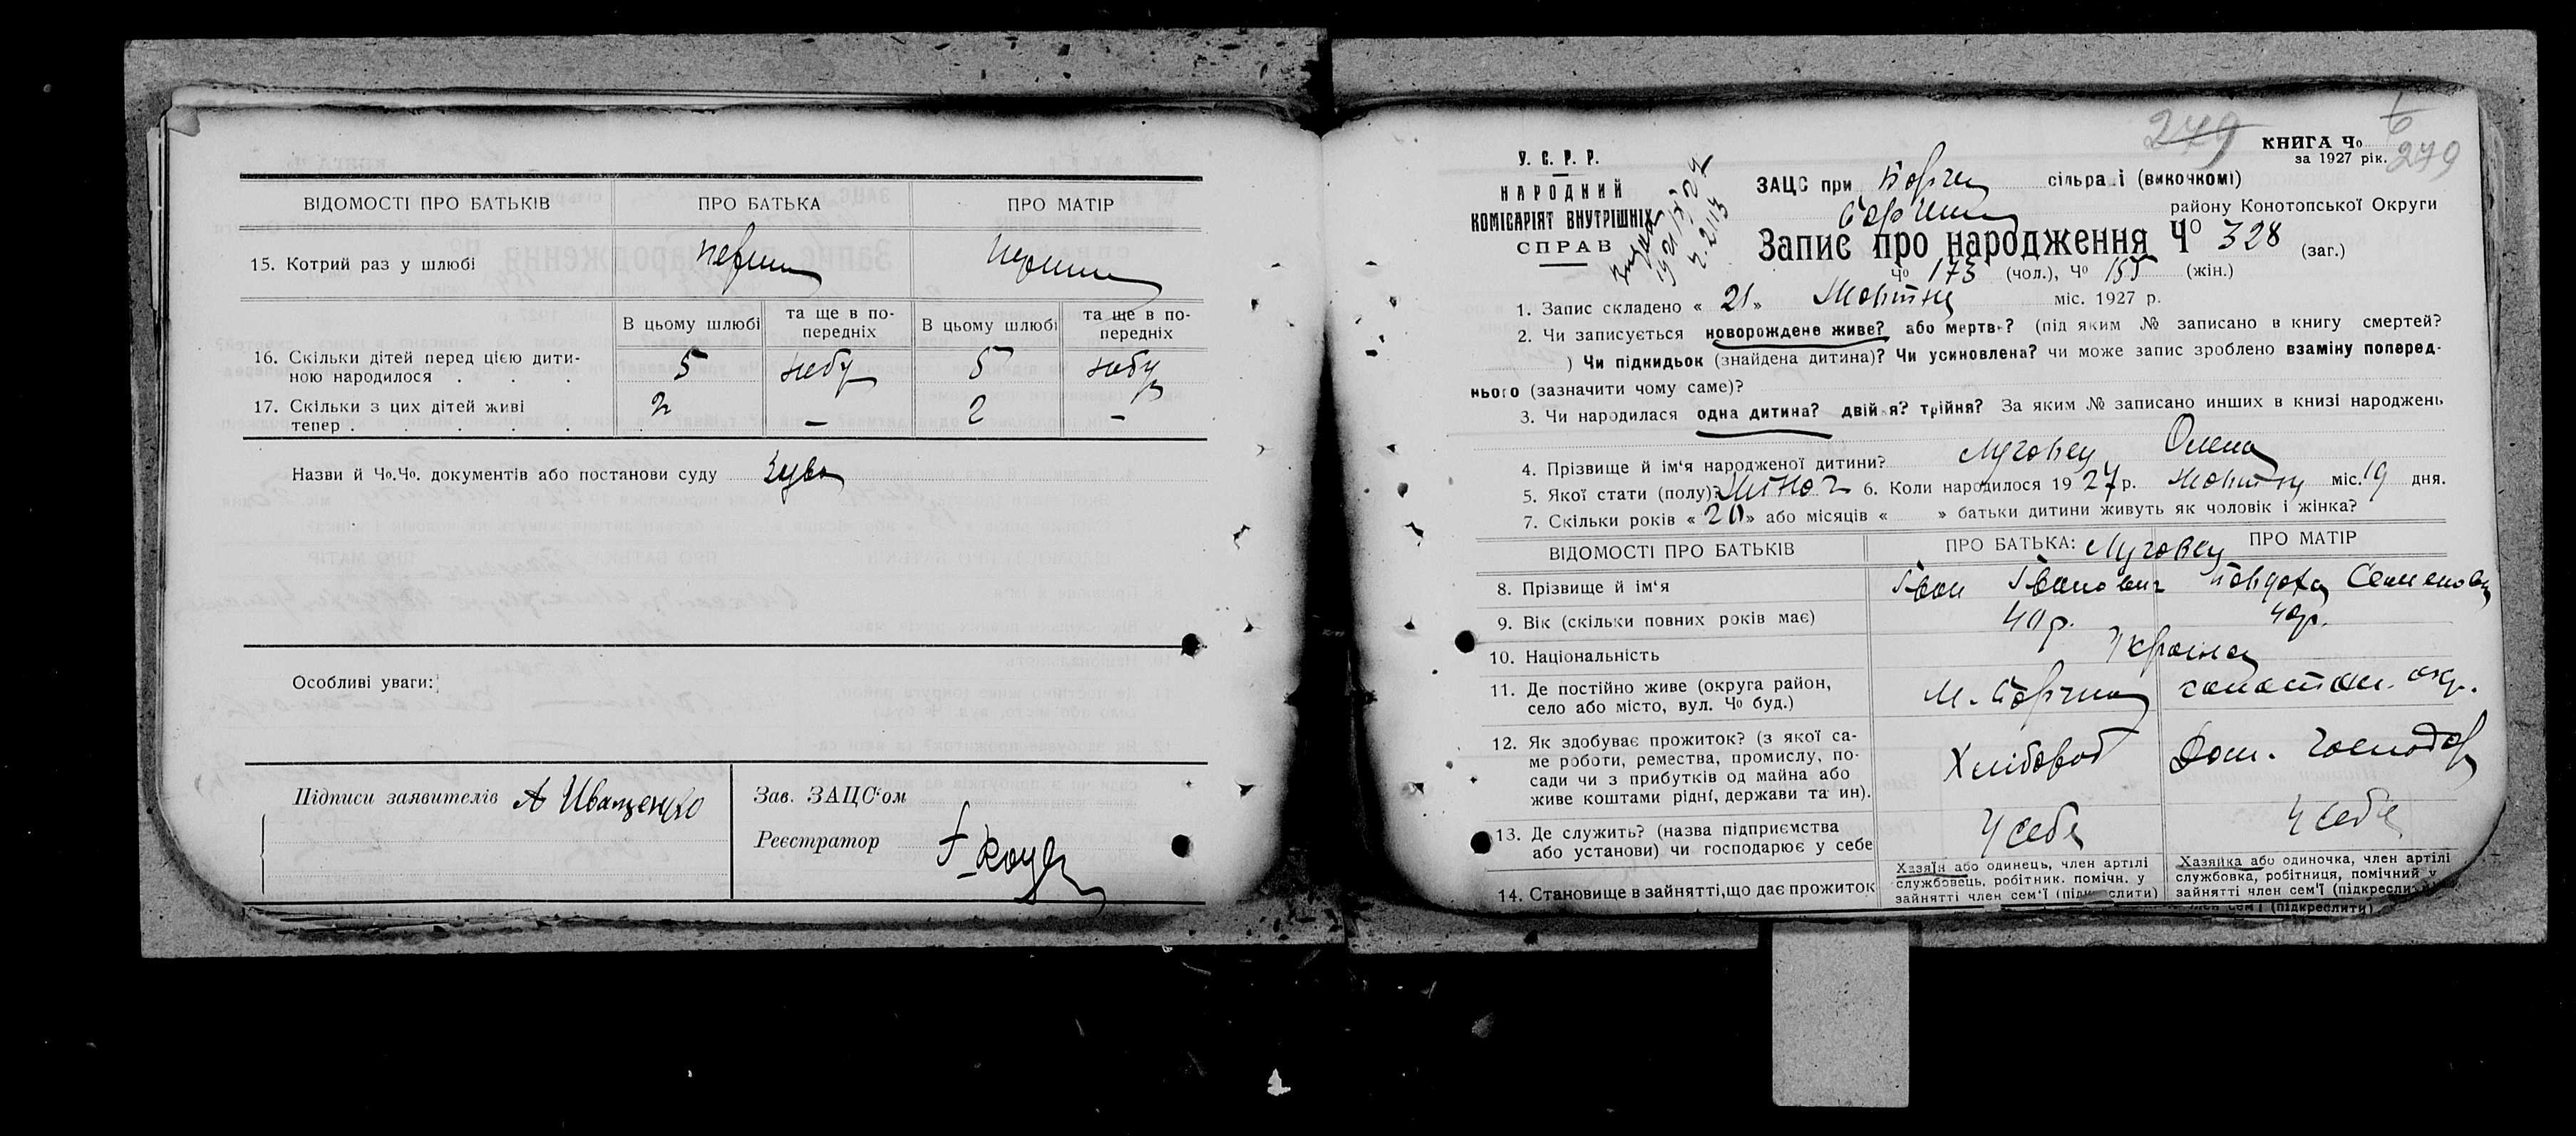 ВІДОМОСТІ ПРО БАТЬКІВ ПРО БАТЬКА ПРО МАТІР
15. Котрий раз у шлюбі перший перший
В цьому шлюбі та ще в по-передніх В цьому шлюбі та ще в по-передніх
16. Скільки дітей перед цією дити-
ною народилося . . . 5 небу 5 небу
17. Скільки з цих дітей живі
тепер . . . . . 2 — 2 —
Назви й Чо.Чо. документів або постанови суду
Особливі уваги:
Підписи заявителів А Иващенко
Зав. ЗАЦС'ом
Реєстратор
279
КНИГА Чо 6
за 1927 рік. 279
У. С. Р. Р.
НАРОДНИЙ
КОМІСАРІЯТ ВНУТРІШНІХ
СПРАВ
ЗАЦС при Борзен сільраді (викочкомі)
Борзен району Конотопської Округи
Запис про народження Чо 328 (заг.)
Чо 173 (чол.), Чо 155 (жін.)
1. Запис складено « 21 » Жовтня міс. 1927 р.
2. Чи записується новорождене живе? або мертве? (під яким № записано в книгу смертей?
) Чи підкидьок (знайдена дитина)? Чи усиновлена? чи може запис зроблено взаміну поперед-
нього (зазначити чому саме)?
3. Чи народилася одна дитина? двійня? трійня? За яким № записано инших в книзі народжень
4. Прізвище й ім'я народженої дитини? Луговец Олена
5. Якої стати (полу)? жіноч 6. Коли народилося 1927 р. Жовтня міс. 19 дня.
7. Скільки років « 20 » або місяців « » батьки дитини живуть як чоловік і жінка?
ВІДОМОСТІ ПРО БАТЬКІВ ПРО БАТЬКА: Луговец ПРО МАТІР
8. Прізвище й ім'я Іван Іванович Явдоха Семеновна
9. Вік (скільки повних років має) 40 р. 40 р.
10. Національність Україн
11. Де постійно живе (округа район,
село або місто, вул. Чо буд.) М. Борзна Конотоп. окр.
12. Як здобуває прожиток? (з якої са-
ме роботи, ремества, промислу, по-
сади чи з прибутків од майна або
живе коштами рідні, держави та ин). Хлібороб Дом. господар
13. Де служить? (назва підприємства
або установи) чи господарює у себе У себе У себе
14. Становище в зайнятті, що дає прожиток
Хазяїн або одинець, член артілі
службовець, робітник. помічн. у
зайнятті член сем'ї (підкреслити)
Хазяйка або одиночка, член артілі
службовка, робітниця, помічний у
зайнятті член сем'ї (підкреслити)
член сем'ї (підкреслити)